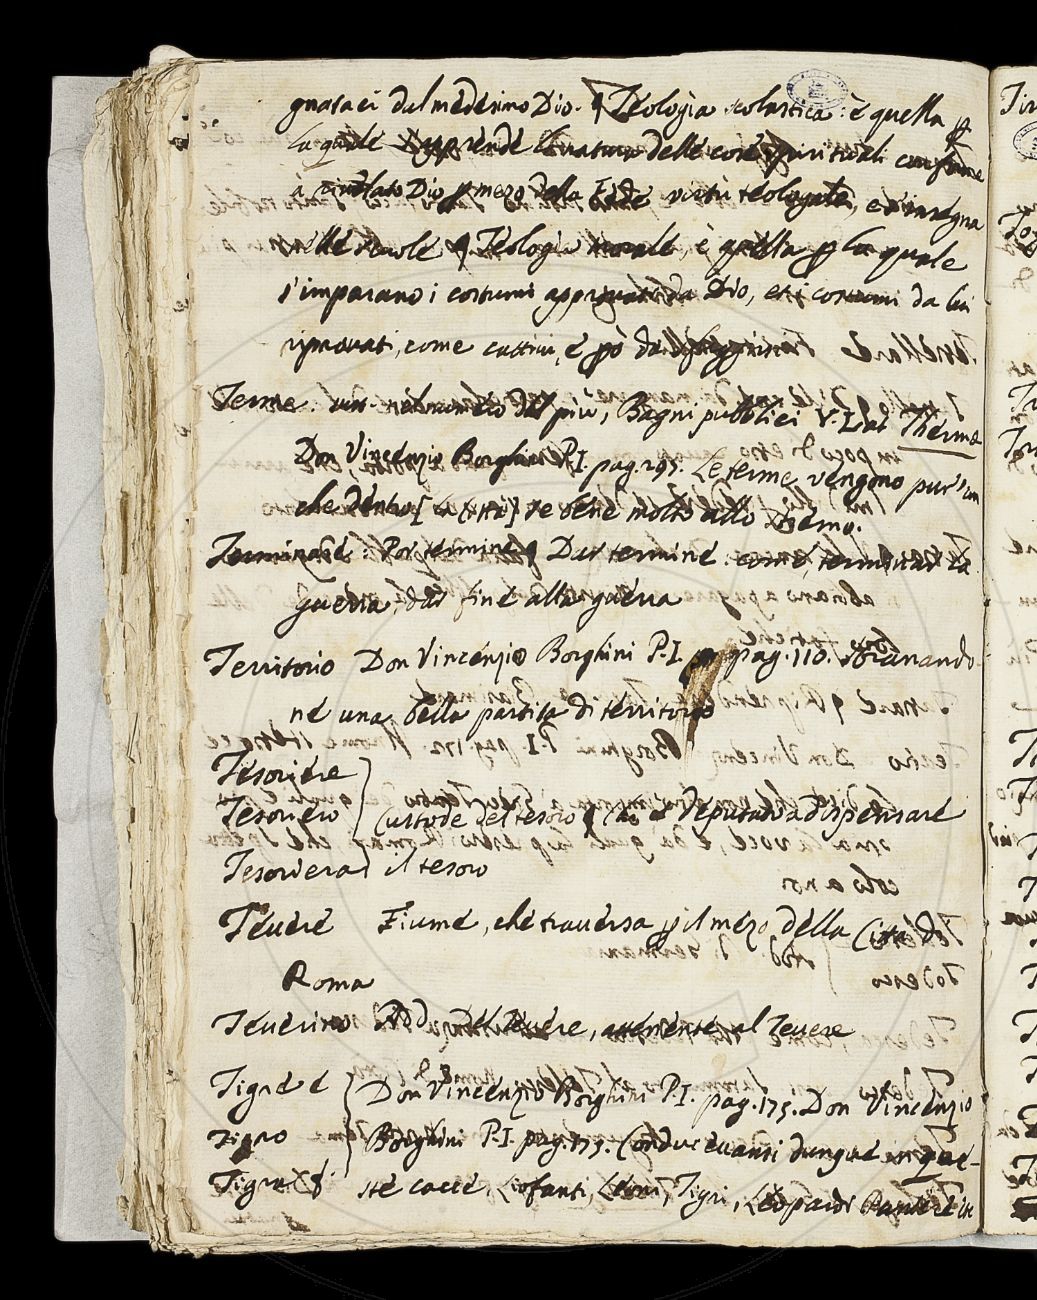 gnataci dal medesimo Dio. ¶ Teologia scolastica: è quella p
la quale s'apprende la natura delle cose spirituali conforme
à rivelato Dio p mezo della Fede virtù teologale, e s'insegna
nelle scuole ¶ Teologia morale, è quella p la quale
s'imparano i costumi approvati da Dio, et i costumi da lui
riprovati, come cattivi, e pò da fuggirsi
Terme. nel numero del più, Bagni pubblici V. Lat Thermæ
Don Vincenzio Borghini P.I. pag. 295. Le terme vengono pur'an
che dentro [la Città] se bene molto allo stremo.
Terminare. Por termine ¶ Dar termine. come, terminar la
guerra. dar fine alla guerra
Territorio Don Vincenzio Borghini P.I. pag. 110. sbranando
ne una bella partita di territorio
Tesoriere
Tesoriero Custode del tesoro, deputato a dispensare
Tesoriera il tesoro
Tevere Fiume, che traversa p il mezo della Città di
Roma
Teverino Add. del Tevere, attenente al Tevere
Tigre e Don Vincenzio Borghini P.I. pag. 175. Don Vincenzio
Tigro Borghini P.I. pag. 175. Conducevansi dunque in que-
Tigra f. ste cacce, Liofanti, Leoni, Tigri, Leopardi Pantere